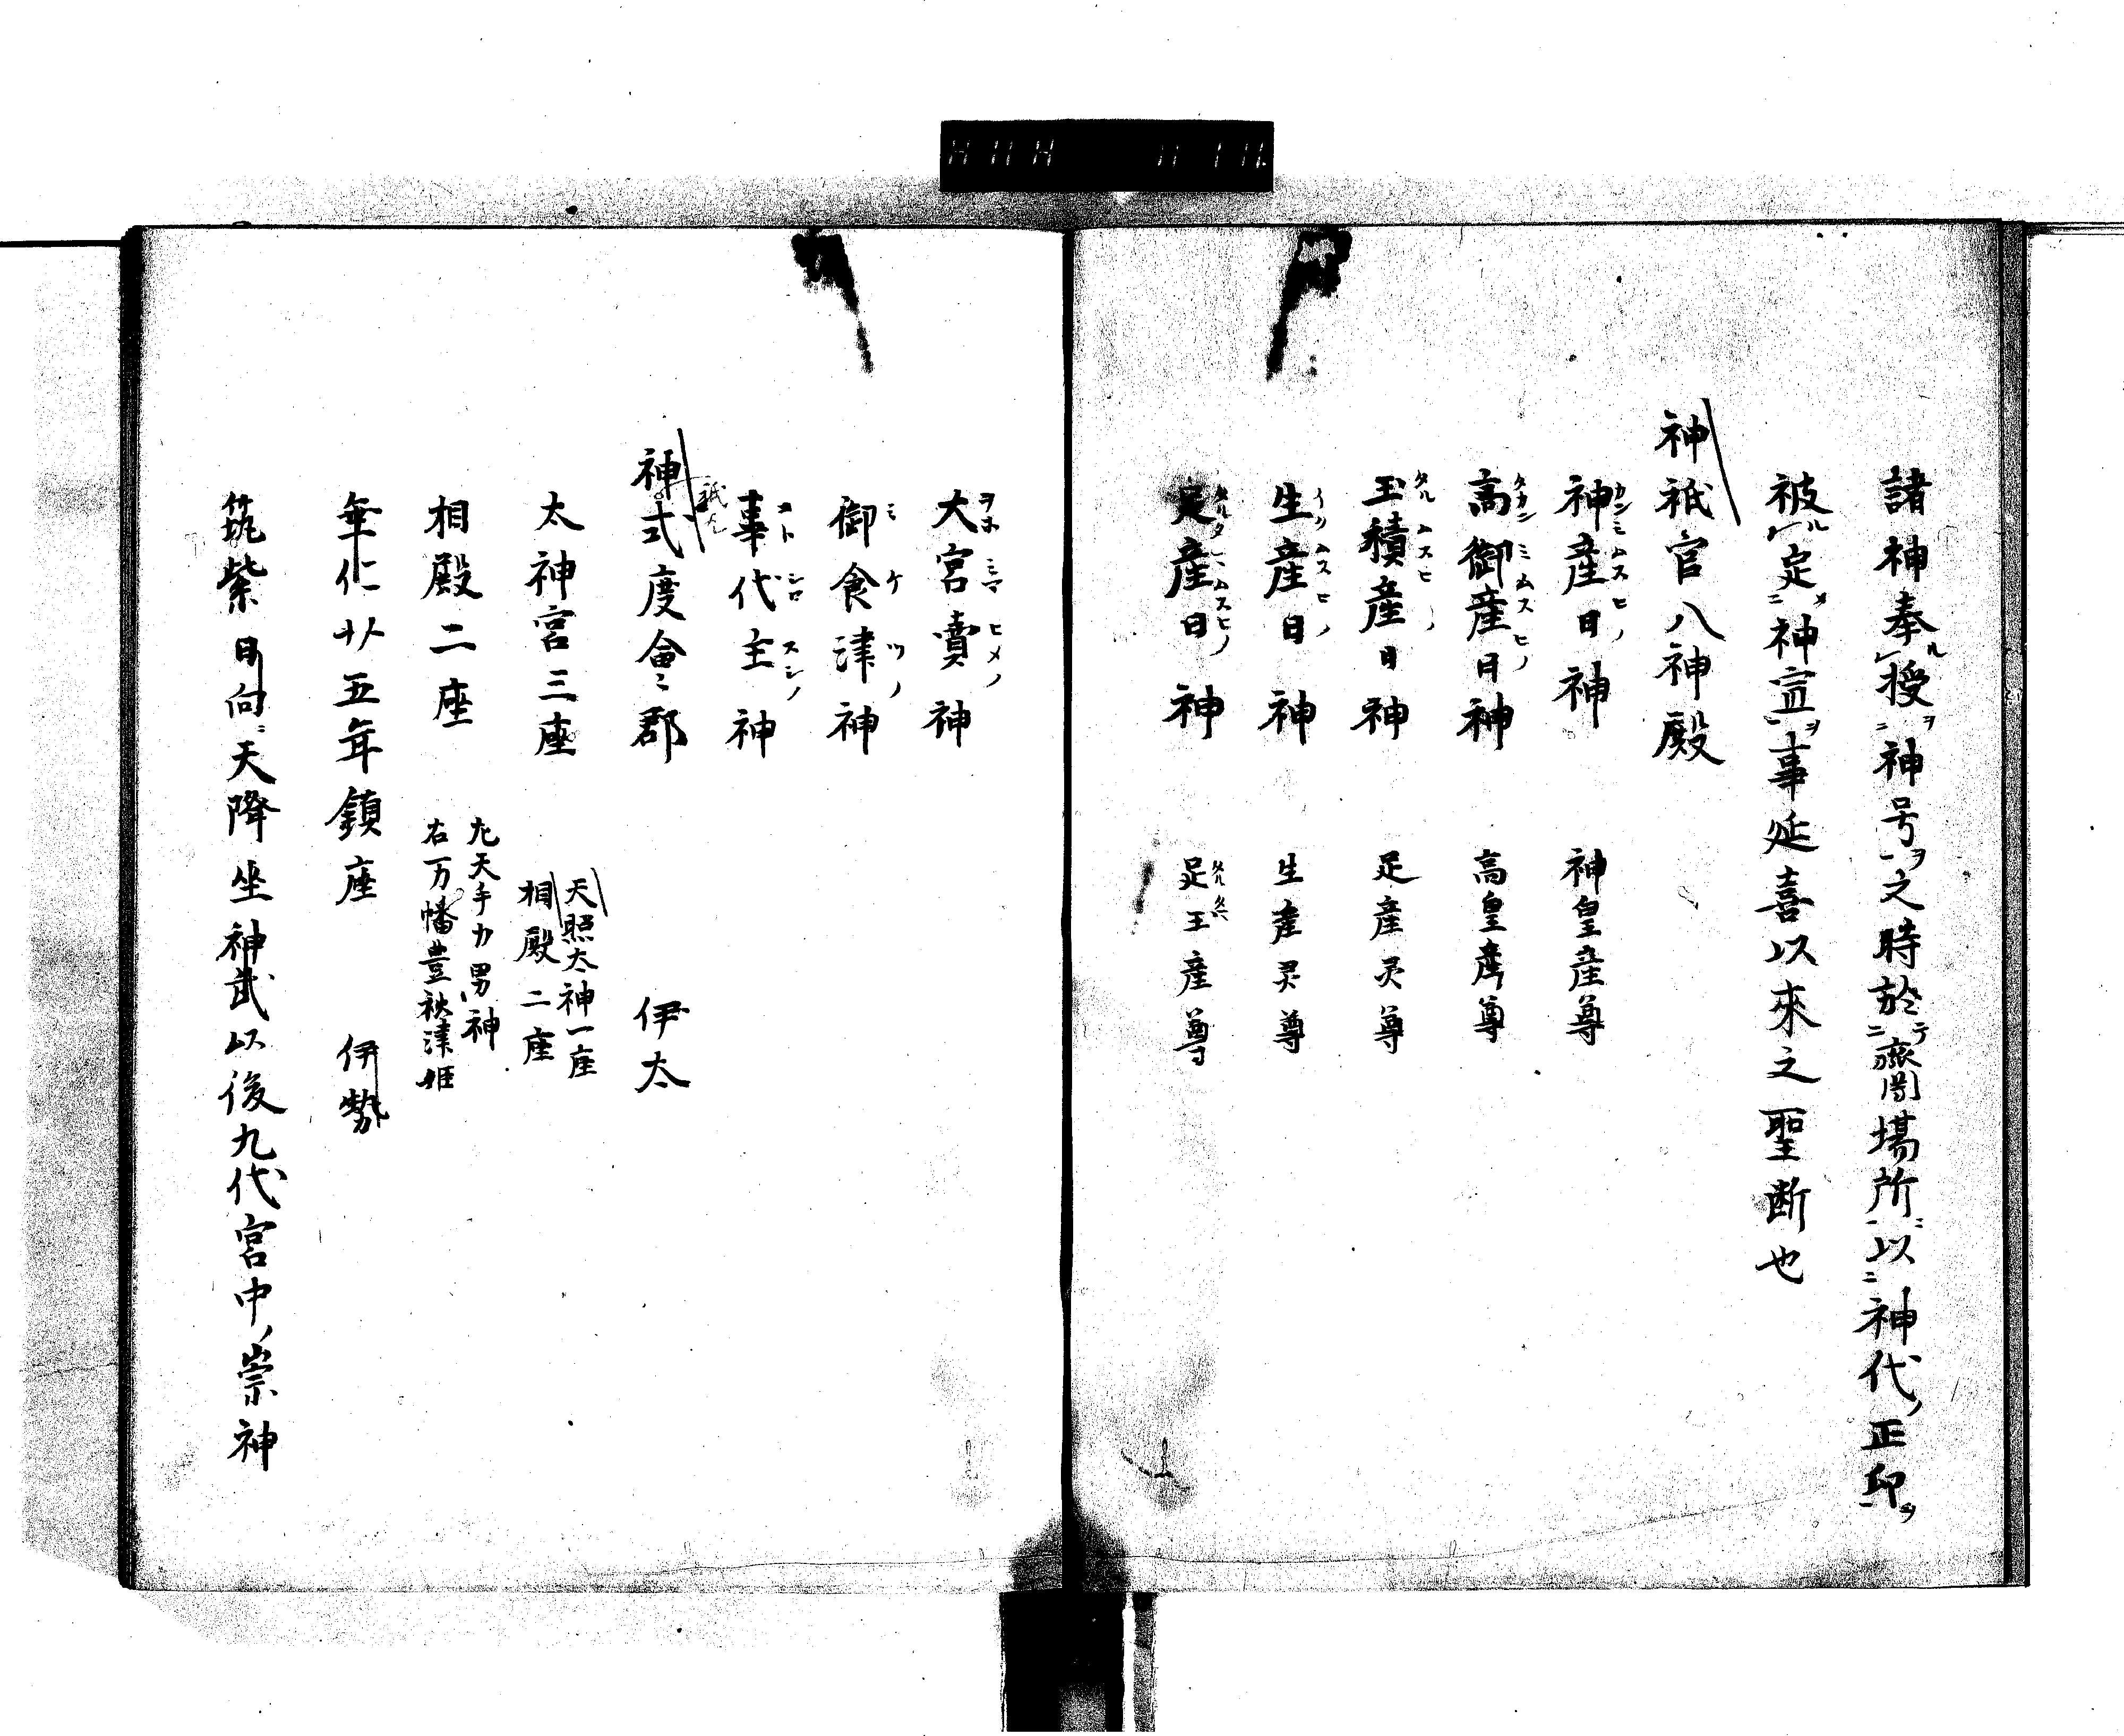 諸神奉授神号之時於齋場所以神代正印
被定神宣事延喜以來之聖断也
神祇官八神殿
神産日神 神皇産尊
高御産日神 高皇産尊
玉積産日神 足産灵尊
生産日神 生産灵尊
足産日神 足玉産尊
大宮賣神
御食津神
事代主神
神祇式度會郡 伊太
太神宮三座 天照太神一座
相殿二座
相殿二座 左天手力男神
右万幡豊秋津姫
垂仁廿五年鎮座 伊勢
筑紫日向天降坐神武以後九代宮中崇神